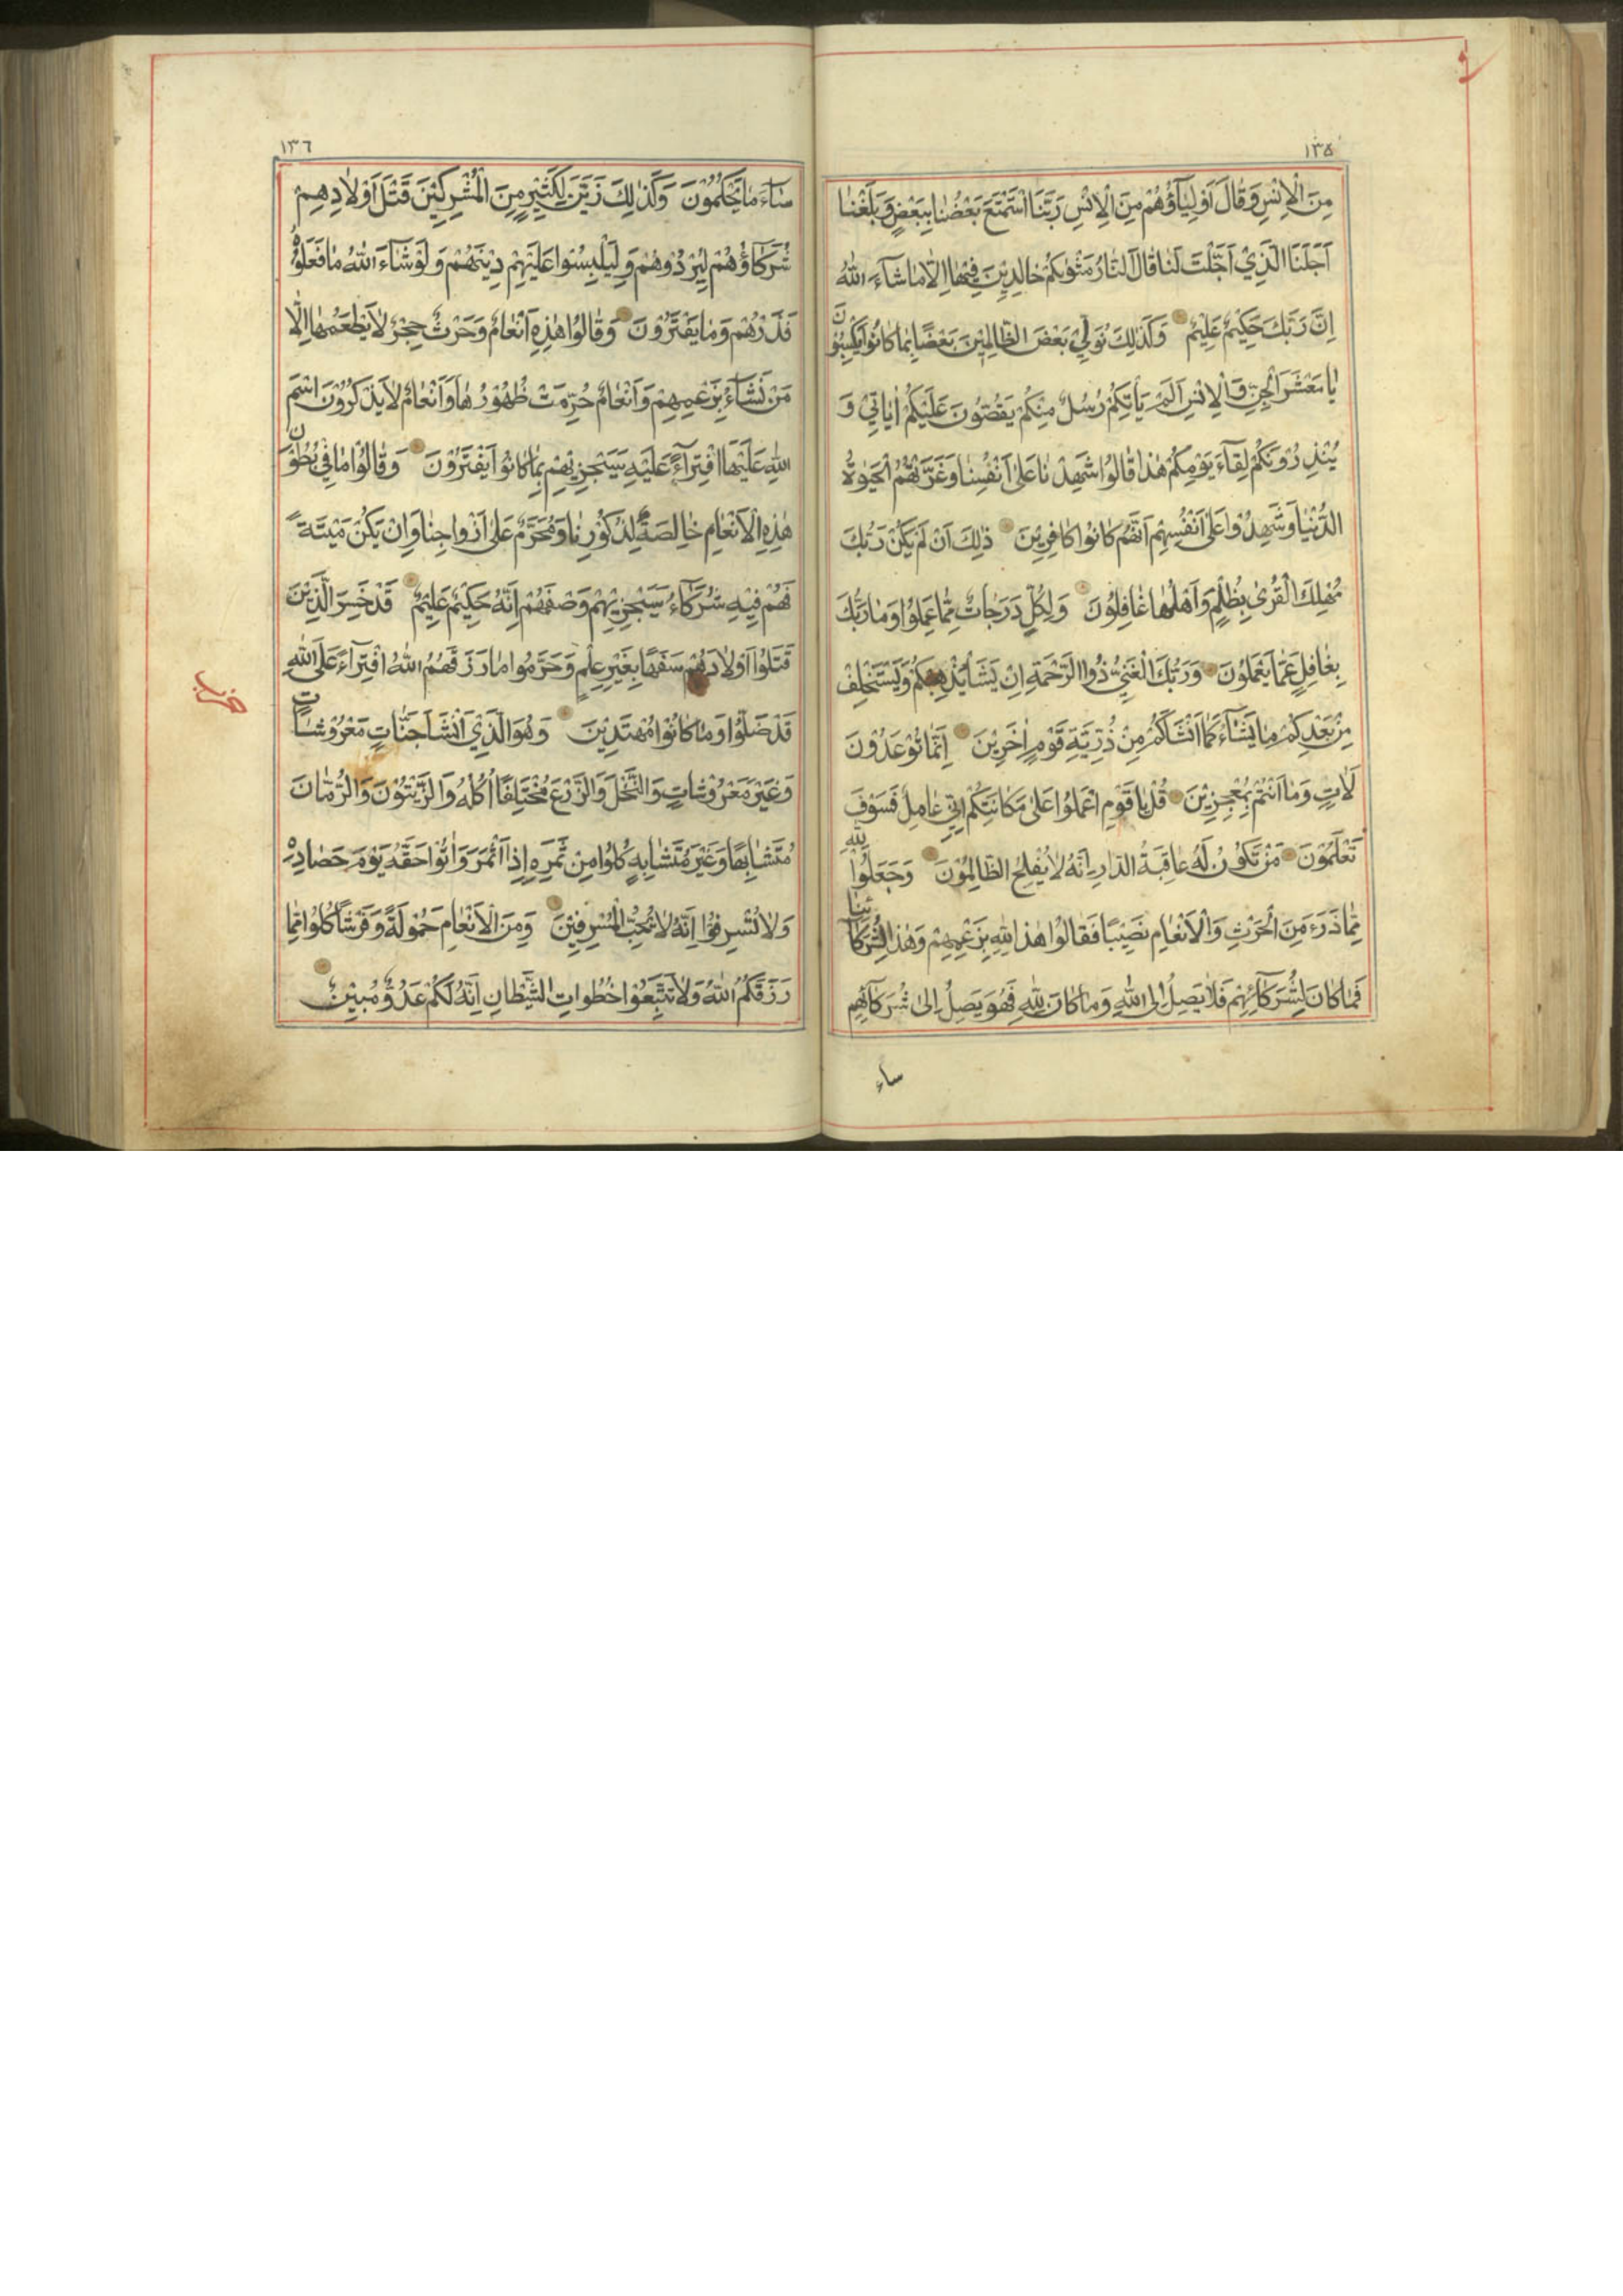 ١٣٥
مِنَ الْاِنْسِ وَقَالَ اَوْلِيَآؤُهُمْ مِنَ الْاِنْسِ رَبَّنَا اسْتَمْتَعَ بَعْضُنَا بِبَعْضٍ وَبَلَغْنَا
اَجَلَنَا الَّذِيْ اَجَّلْتَ لَنَا قَالَ النَّارُ مَثْوٰىكُمْ خَالِدِيْنَ فِيْهَا اِلَّا مَا شَآءَ اللّٰهُ
اِنَّ رَبَّكَ حَكِيْمٌ عَلِيْمٌ وَكَذٰلِكَ نُوَلِّيْ بَعْضَ الظَّالِمِيْنَ بَعْضًا بِمَا كَانُوْا يَكْسِبُوْنَ
يَا مَعْشَرَ الْجِنِّ وَالْاِنْسِ اَلَمْ يَاْتِكُمْ رُسُلٌ مِنْكُمْ يَقُصُّوْنَ عَلَيْكُمْ اٰيَاتِيْ وَ
يُنْذِرُوْنَكُمْ لِقَآءَ يَوْمِكُمْ هٰذَا قَالُوْا شَهِدْنَا عَلٰى اَنْفُسِنَا وَغَرَّتْهُمُ الْحَيٰوةُ
الدُّنْيَا وَشَهِدُوْا عَلٰى اَنْفُسِهِمْ اَنَّهُمْ كَانُوْا كَافِرِيْنَ ذٰلِكَ اَنْ لَمْ يَكُنْ رَبُّكَ
مُهْلِكَ الْقُرٰى بِظُلْمٍ وَاَهْلُهَا غَافِلُوْنَ وَلِكُلٍّ دَرَجَاتٌ مِمَّا عَمِلُوْا وَمَا رَبُّكَ
بِغَافِلٍ عَمَّا يَعْمَلُوْنَ وَرَبُّكَ الْغَنِيُّ ذُوا الرَّحْمَةِ اِنْ يَشَاْ يُذْهِبْكُمْ وَيَسْتَخْلِفْ
مِنْ بَعْدِكُمْ مَا يَشَآءُ كَمَا اَنْشَاَكُمْ مِنْ ذُرِّيَّةِ قَوْمٍ اٰخَرِيْنَ اِنَّمَا تُوْعَدُوْنَ
لَاٰتٍ وَمَا اَنْتُمْ بِمُعْجِزِيْنَ قُلْ يَا قَوْمِ اعْمَلُوْا عَلٰى مَكَانَتِكُمْ اِنِّيْ عَامِلٌ فَسَوْفَ
تَعْلَمُوْنَ مَنْ تَكُوْنُ لَهُ عَاقِبَةُ الدَّارِ اِنَّهُ لَا يُفْلِحُ الظَّالِمُوْنَ وَجَعَلُوْا لِلّٰهِ
مِمَّا ذَرَءَ مِنَ الْحَرْثِ وَالْاَنْعَامِ نَصِيْبًا فَقَالُوْا هٰذَا لِلّٰهِ بِزَعْمِهِمْ وَهٰذَا لِشُرَكَآئِنَا
فَمَا كَانَ لِشُرَكَآئِهِمْ فَلَا يَصِلُ اِلَى اللّٰهِ وَمَا كَانَ لِلّٰهِ فَهُوَ يَصِلُ اِلٰى شُرَكَآئِهِمْ
ساء
١٣٦
سَآءَ مَا يَحْكُمُوْنَ وَكَذٰلِكَ زَيَّنَ لِكَثِيْرٍ مِنَ الْمُشْرِكِيْنَ قَتْلَ اَوْلَادِهِمْ
شُرَكَاؤُهُمْ لِيُرْدُوْهُمْ وَلِيَلْبِسُوْا عَلَيْهِمْ دِيْنَهُمْ وَلَوْ شَآءَ اللّٰهُ مَا فَعَلُوْهُ
فَذَرْهُمْ وَمَا يَفْتَرُوْنَ وَقَالُوْا هٰذِهِ اَنْعَامٌ وَحَرْثٌ حِجْرٌ لَا يَطْعَمُهَا اِلَّا
مَنْ نَشَآءُ بِزَعْمِهِمْ وَاَنْعَامٌ حُرِّمَتْ ظُهُوْرُهَا وَاَنْعَامٌ لَا يَذْكُرُوْنَ اسْمَ
اللّٰهِ عَلَيْهَا افْتِرَآءً عَلَيْهِ سَيَجْزِيْهِمْ بِمَا كَانُوْا يَفْتَرُوْنَ وَقَالُوْا مَا فِيْ بُطُوْنِ
هٰذِهِ الْاَنْعَامِ خَالِصَةٌ لِذُكُوْرِنَا وَمُحَرَّمٌ عَلٰى اَزْوَاجِنَا وَاِنْ يَكُنْ مَيْتَةً
فَهُمْ فِيْهِ شُرَكَآءُ سَيَجْزِيْهِمْ وَصْفَهُمْ اِنَّهُ حَكِيْمٌ عَلِيْمٌ قَدْ خَسِرَ الَّذِيْنَ
قَتَلُوْا اَوْلَادَهُمْ سَفَهًا بِغَيْرِ عِلْمٍ وَحَرَّمُوْا مَا رَزَقَهُمُ اللّٰهُ افْتِرَآءً عَلَى اللّٰهِ
قَدْ ضَلُّوْا وَمَا كَانُوْا مُهْتَدِيْنَ وَهُوَ الَّذِيْ اَنْشَاَ جَنَّاتٍ مَعْرُوْشَاتٍ
وَغَيْرَ مَعْرُوْشَاتٍ وَالنَّخْلَ وَالزَّرْعَ مُخْتَلِفًا اُكُلُهُ وَالزَّيْتُوْنَ وَالرُّمَّانَ
مُتَشَابِهًا وَغَيْرَ مُتَشَابِهٍ كُلُوْا مِنْ ثَمَرِهِ اِذَا اَثْمَرَ وَاٰتُوْا حَقَّهُ يَوْمَ حَصَادِهِ
وَلَا تُسْرِفُوْا اِنَّهُ لَا يُحِبُّ الْمُسْرِفِيْنَ وَمِنَ الْاَنْعَامِ حَمُوْلَةً وَفَرْشًا كُلُوْا مِمَّا
رَزَقَكُمُ اللّٰهُ وَلَا تَتَّبِعُوْا خُطُوَاتِ الشَّيْطَانِ اِنَّهُ لَكُمْ عَدُوٌّ مُبِيْنٌ